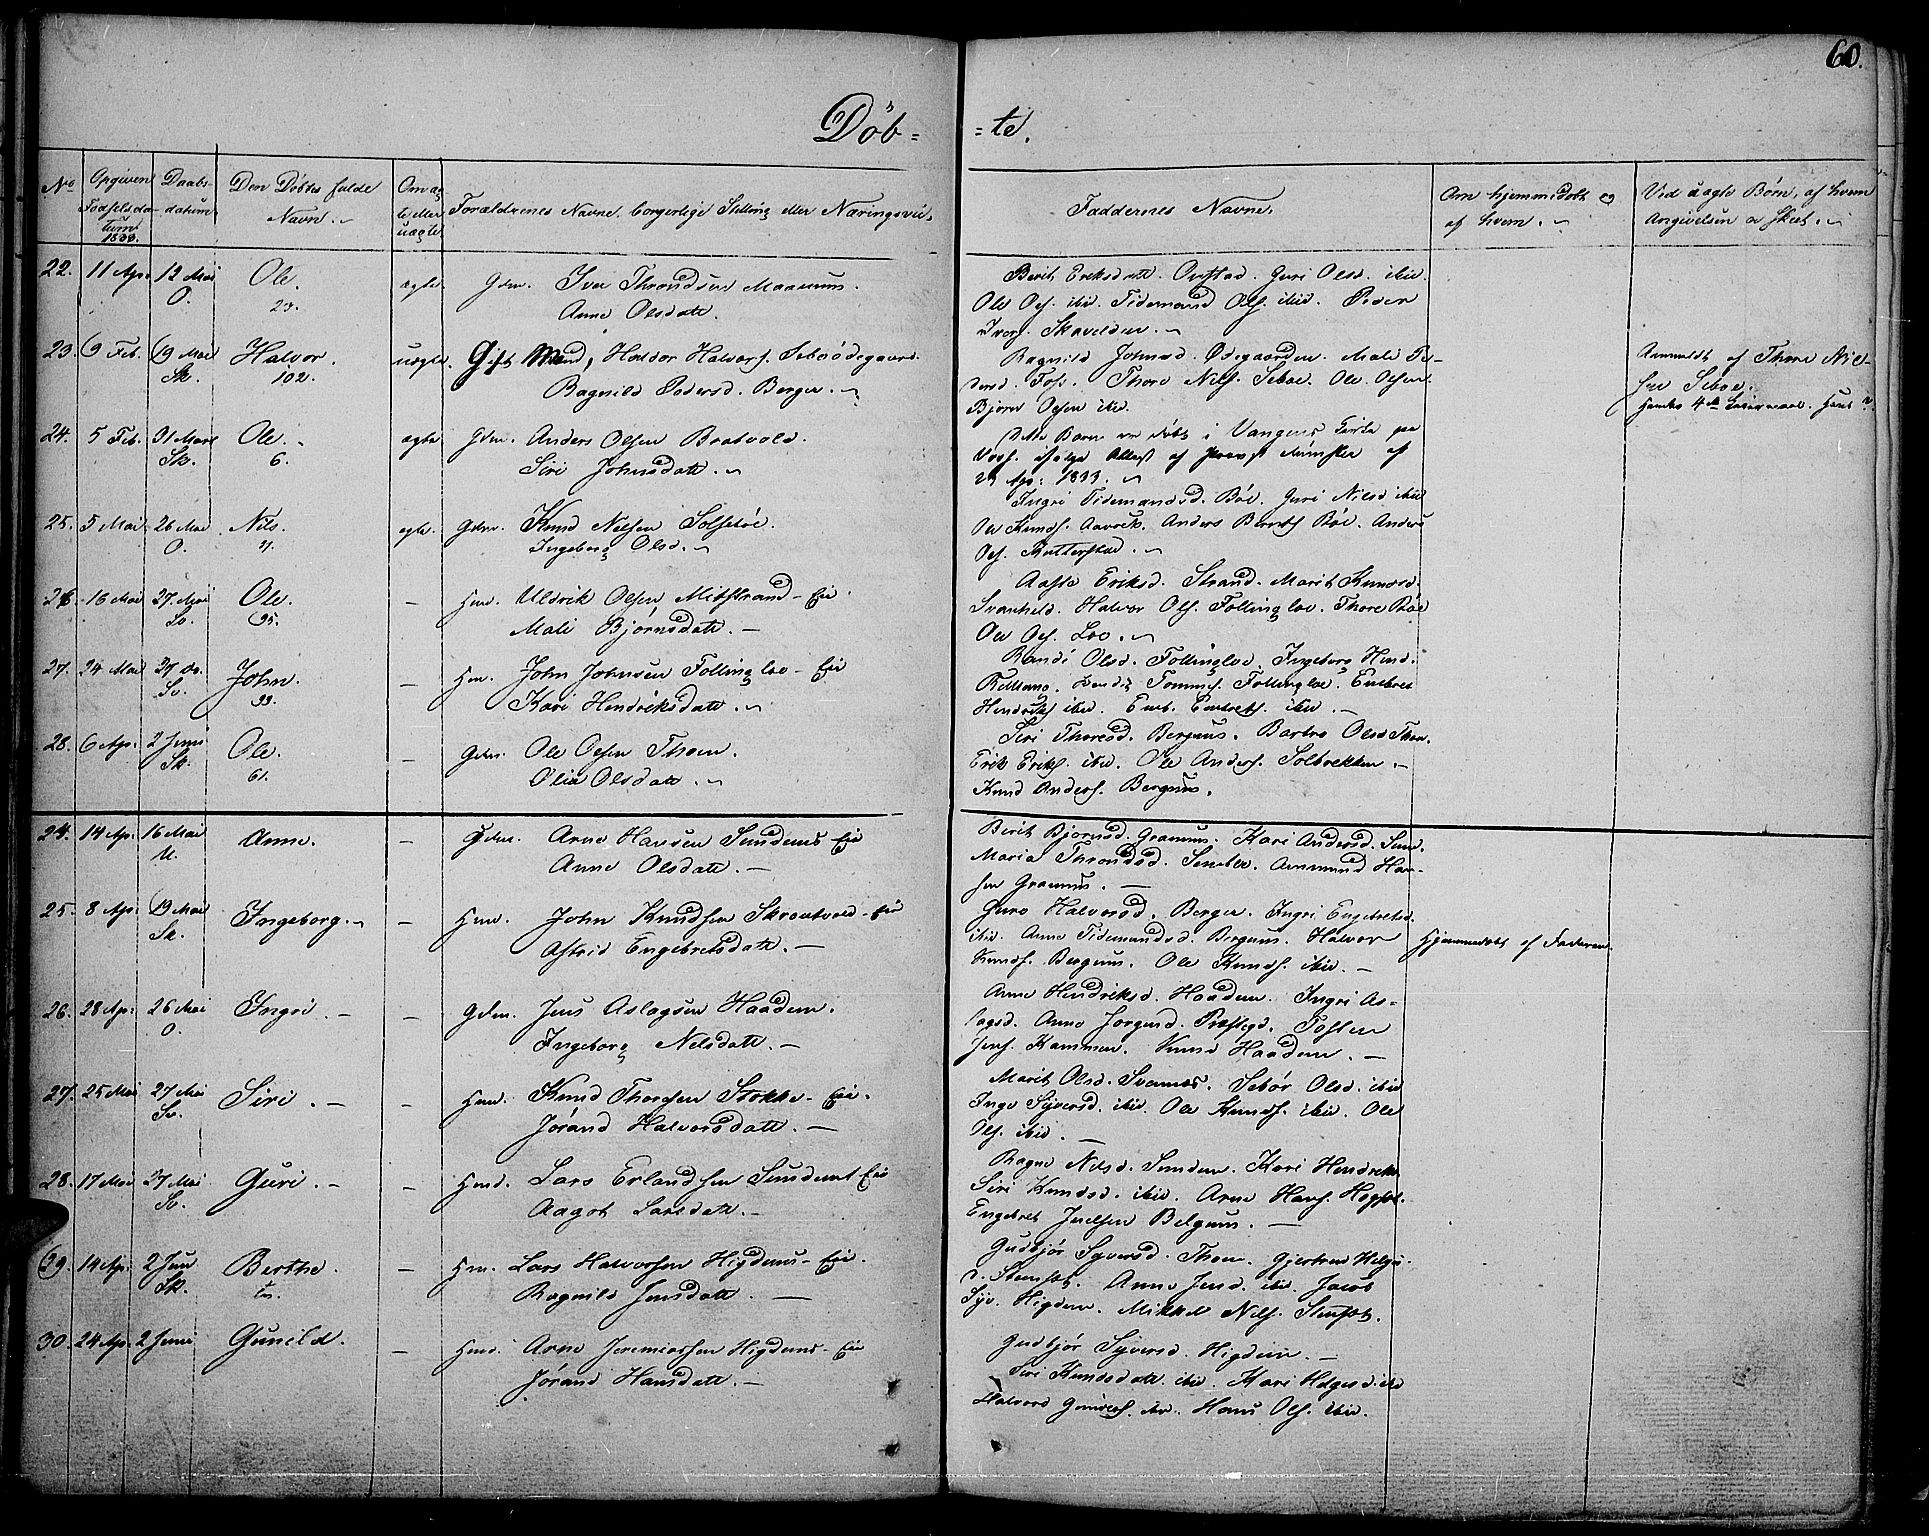 60.
Døb= =te.
No Opgiven Fødselsdatum 1833. Daabs-datum Den Døbtes fulde Navn. Om ægte eller uægte Forældrenes Navne, borgerlige Stilling eller Næringsvei.
Faddernes Navne. Om hjemmedøbt og af hvem. Ved uægte Børn, af hvem Angivelsen er skeet.
22. 11 Apr. 12 Mai O. Ole. 23. ægte Gdm. Iver Throndsen
Anne Olsdatt.
Berit Eriksdatt. Guri Olsd. ibid.
Ole Ols. ibid. Tidemand Ols. ibid. Peder
23. 9 Feb. 19 Mai Sk. Halvor. 102. uægte. Gift Mand, Haldor Halvors. Sebøødegaard
Ragnild Pedersd. Berger.
Ragnild Johnsd. Ødegaarden. Mali Pe-
dersd. Foss. Thore Nils. Seboe. Ole Olsen
Bjørn Olsen ibid.
Anmeldt af Thore Niel-
sen Seboe.
24. 5 Feb. 31 Mart Sk. Ole. 6. ægte Gdm. Anders Olsen Bratvold.
Siri Johnsdatt.
Dette Barn er døbt i Vangens Kirke paa
Voss. ifølge Attest af Provst Münster af
23 Apr: 1833.
25. 5 Mai 26 Mai O. Nils. ægte. Gdm. Knud Nelsen
Ingeborg Olsd.
Ingri Tidemandsd. Bøe. Guri Nilsd ibid
Ole Knuds. Anders Berntss Bøe. Anders
Ols.
26. 16 Mai 27. Mai Sv. Ole. 95. — Hmd. Uldrik Olsen Midtstrand - Eie.
Mali Bjørnsdatt. —
Aaste Eriksd. Strand. Marit Knudsd.
Svanheld. Halvor Ols. Follingloe. Thore Bøe
Ole Ols. Loe.
27. 24 Mai 27 do. Sv. John. 99. — Hm. John Johnsen Follingloe - Eie
Kari Hendriksdatt.
Randi Olsd. Follingloe. Ingeborg Hend.
Tommes. Follingloe. Embret
Hendriks ibid. Emb. Embrets. ibid. —
28. 6 Apr. 2 Juni Sk. Ole. 61. — Gdm. Ole Olsen Thoen.
Olia Olsdatt.
Siri Thoresd. Bergum. Barbro Olsd Thoen.
Erik Eriks. ibid. Ole Anders. Solbrekken —
Knud Anders. Bergum.
24. 14 Ap. 16 Mai U. Anne. — Gdm. Arne Hansen Sundems Eie
Anne Olsdatt. —
Berit Bjørnsd. Granum. Kari Andersd. Sund.
Maria Throndsd. Ammund Han-
sen Granum. —
25. 8 Ap. 19 Mai Sk. Ingeborg. — Hmd. John Knudsen Skroutvold - Eie
Astrid Engebretsdatt. —
Guro Halvorsd. Berger. Ingri Engebretsd.
ibid. Anne Tidemandsd. Bergum. Halvor
Knuds. Bergum. Ole Knuds. ibid. —
Hjemmedøbt af Faderen.
26. 28 Ap. 26 Mai O. Ingri. — Gdm. Jens Aslagsen Haadem.
Ingeborg Nelsdatt. —
Anne Hendriksd. Haadem. Ingri As-
lagsd. Anne Jørgensd. Præstegd. Tosten
Jens. Kammen. Knud Haadem. —
27. 25 Mai 27 Mai Sv. Siri. — Hmd. Knud Thoresen Stokke - Eie.
Jørand Halvorsdatt. —
Marit Olsd. Svennes. Sebør Olsd. ibid
Inge Syversd. ibid. Ole Knuds. ibid. Ole
Ols. ibid. —
28. 17 Mai 27 Mai Sv. Guri. — Hmd. Lars Erlandsen Sundems Eie
Aagot Larsdatt. —
Ragne Nelsd. Sundem. Kari Hendriks.
Siri Knudsd. ibid. Arne Hans.
Engebret Juelsen Belgum. —
29. 14 Ap. 2 Jun Sk. Berthe. — Hm. Lars Halvorsen Higdems - Eie.
Ragnild Jensdatt. —
Gudbjør Syversd. Thoen. Gjertrud Helge-
d. Anne Jensd. ibid. Jacob
Syv. Higdem. Mikkel Nels.
30. 24 Ap. 2 Juni Gunild. — Hmd. Arne Jeremiassen Higdems - Eie
Jørand Hansdatt. —
Gudbjør Syversd. Higdem. —
Siri Knudsdatt. ibid. Kari Helgesd. ibid
Halvord ibid. Hans Ols. ibid.